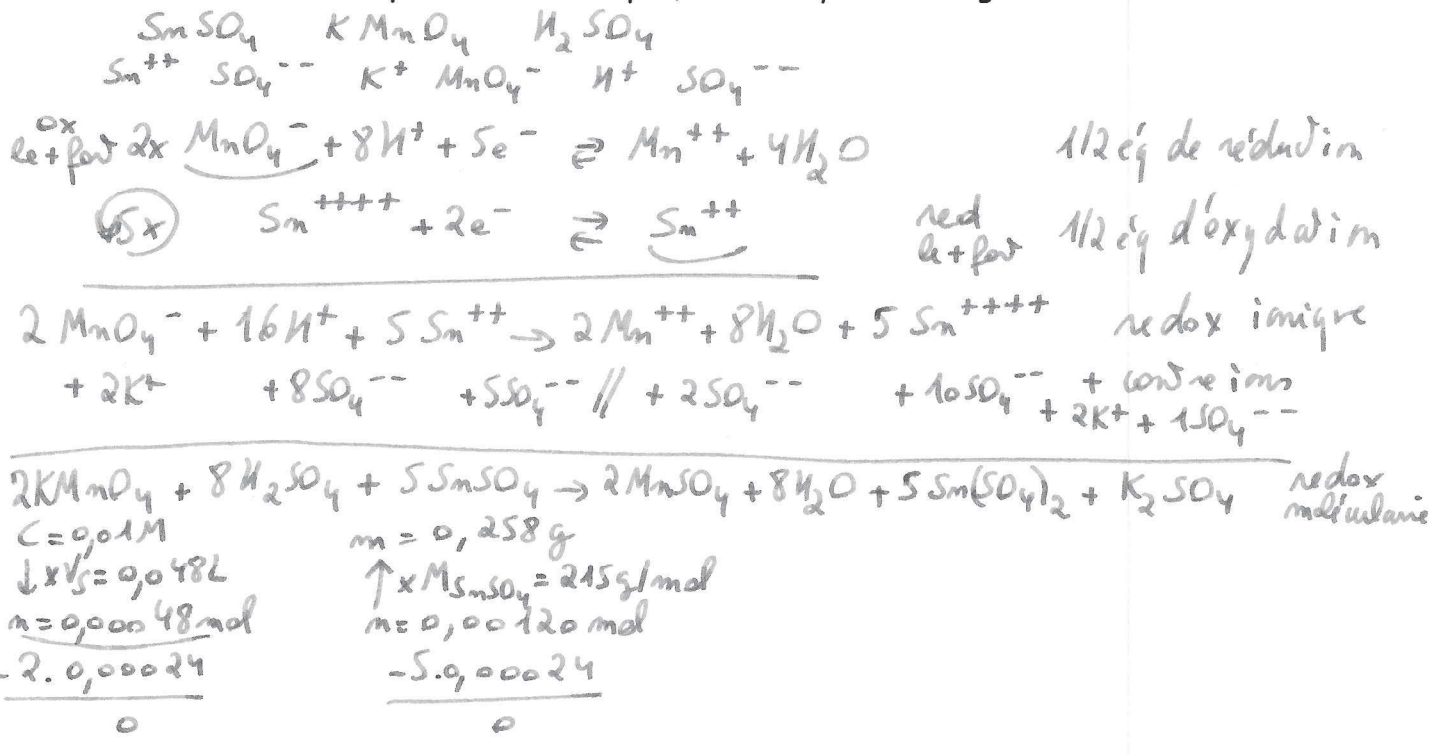 SnSO₄ KMnO₄ H₂SO₄
Sn⁺⁺ SO₄⁻⁻ K⁺ MnO₄⁻ H⁺ SO₄⁻⁻
ox le + fort 2x MnO₄⁻ + 8H⁺ + 5e⁻ ⇄ Mn⁺⁺ + 4H₂O 1/2 éq de réduction
5x Sn⁺⁺⁺⁺ + 2e⁻ ⇄ Sn⁺⁺ red le + fort 1/2 éq d'oxydation
2 MnO₄⁻ + 16H⁺ + 5 Sn⁺⁺ → 2 Mn⁺⁺ + 8H₂O + 5 Sn⁺⁺⁺⁺ redox ionique
+ 2K⁺ + 8SO₄⁻⁻ + 5SO₄⁻⁻ // + 2SO₄⁻⁻ + 10SO₄⁻⁻ + contre ions
+ 2K⁺ + 1SO₄⁻⁻
2KMnO₄ + 8H₂SO₄ + 5SnSO₄ → 2MnSO₄ + 8H₂O + 5Sn(SO₄)₂ + K₂SO₄ redox moléculaire
C = 0,01M m = 0,258g
↓ x Vs = 0,048L ↑ x M SnSO₄ = 215g/mol
n = 0,00048 mol n = 0,00120 mol
- 2. 0,00024 - 5. 0,00024
0 0